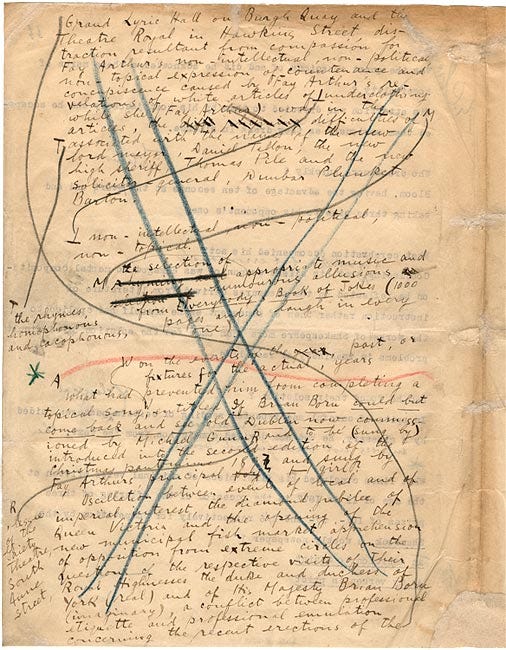 Grand Lyric Hall on Burgh Quay and the
Theatre Royal in Hawkins Street, dis-
traction resultant from compassion for
Fay Arthur's non-intellectual, non-political
non-topical expression of countenance and
concupiscence caused by Fay Arthur's re-
velations of white articles of underclothing
while she (Fay Arthur) in the
articles, the difficulties of
associated with the names of the new
lord mayor, Daniel Tallon, the new
high sheriff, Thomas Pile and the new
solicitor general, Dunbar Plunket
Barton
I non-intellectual, non-political,
non-topical,
the selection of
M appropriate music and
humourous allusions
from Everybody's Book of Jokes (1000
pages and a laugh in every
one)
T
the rhymes,
homophonous
and cacophonous,
past or
W on the events
fixtures for the actual, years
A
What had prevented him from completing a
topical song, If Brian Boru could but
come back and see old Dublin now commiss-
ioned by Michael Gunn R and to be (sung by)
introduced into the second edition of the
Christmas and sung by
Fay Arthur principal girl?
Oscillation between events of local and of
imperial interest, the diamond jubilee of
Queen Victoria and the opening of the
new municipal fish market: apprehension
of opposition from extreme circles on the
question of the respective visits of Their
Royal Highnesses the duke and duchess of
York (real) and of His Majesty Brian Boru
(imaginary), a conflict between professional
etiquette and professional emulation
concerning the recent erections of the
R
of the
Gaiety
Theatre,
South
street